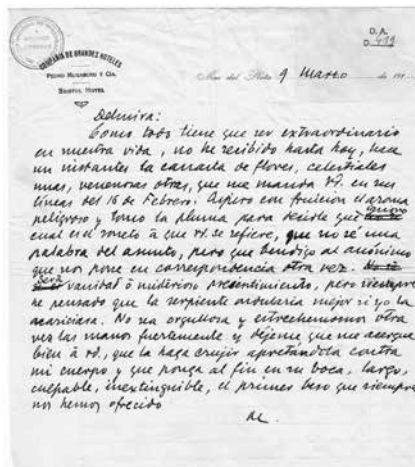 D. A.
D. 419
COMPAÑIA DE GRANDES HOTELES
PEDRO MUGABURU Y CIA.
BRISTOL HOTEL
Mar del Plata 9 Marzo de 191
Delmira:
Como todo tiene que ser extraordinario
en nuestra vida, no he recibido hasta hoy, hace
un instante la canasta de flores, celestiales
unas, venenosas otras, que me manda Vd. en sus
líneas del 16 de Febrero. Aspiro con fruición el aroma
peligroso y tomo la pluma para decirle que ignoro
cual es el soneto á que vd. se refiere, que no sé una
palabra del asunto, pero que bendigo al anónimo
que nos pone en correspondencia otra vez. No sé
será vanidad ó misterioso presentimiento, pero siempre
he pensado que la serpiente ondularia mejor si yo la
acariciara. No sea orgullosa y estrechemonos otra
vez las manos fuertemente y déjeme que me acerque
bien á vd., que la haga crujir apretándola contra
mi cuerpo y que ponga al fin en su boca, largo,
culpable, inextinguible, el primer beso que siempre
nos hemos ofrecido